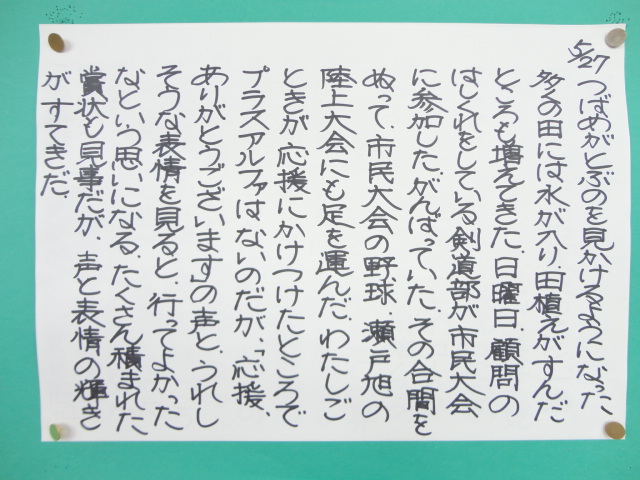 5/27 つばめがとぶのを見かけるようになった
多くの田には水が入り、田植えがすんだ
ところも増えてきた。日曜日、顧問の
はしくれをしている剣道部が市民大会
に参加した。がんばっていた。その合間を
ぬって、市民大会の野球、瀬戸旭の
陸上大会にも足を運んだ。わたしご
ときが応援にかけつけたところで
プラスアルファはないのだが、「応援、
ありがとうございます」の声と、うれし
そうな表情を見ると、行ってよかった
なという思いになる。たくさん積まれた
賞状も見事だが、声と表情の輝き
がすてきだ。